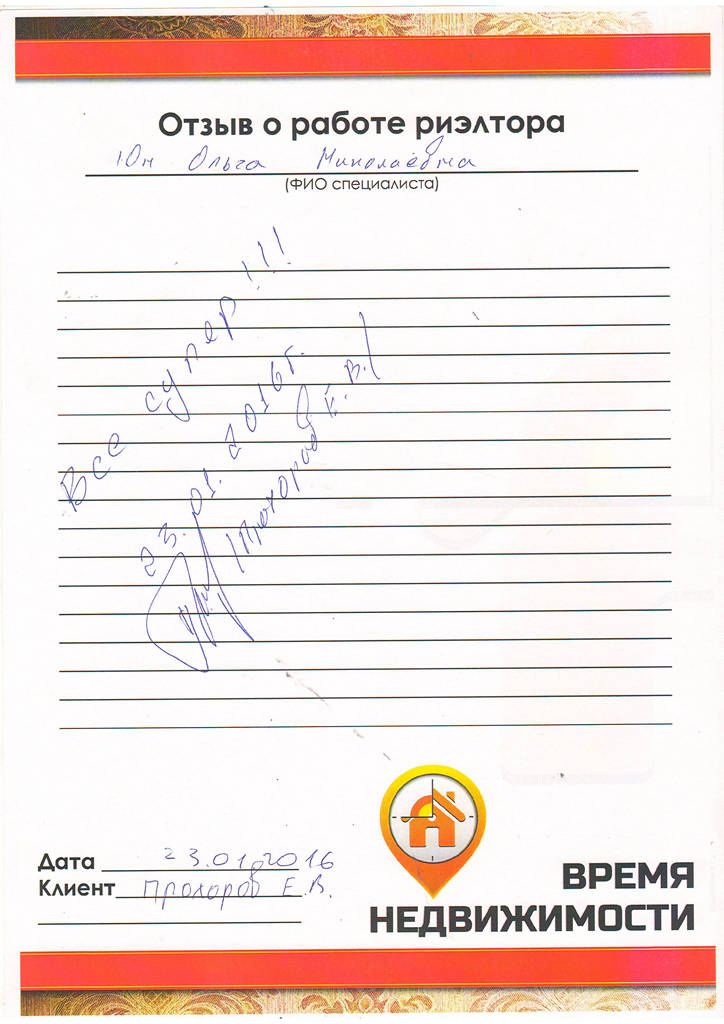 Отзыв о работе риэлтора
Юн Ольга Николаевна
(ФИО специалиста)
Все супер!!!
23.01.2016г.
/Прохоров Е.В./
Дата 23.01.2016
Клиент Прохоров Е.В.
ВРЕМЯ
НЕДВИЖИМОСТИ